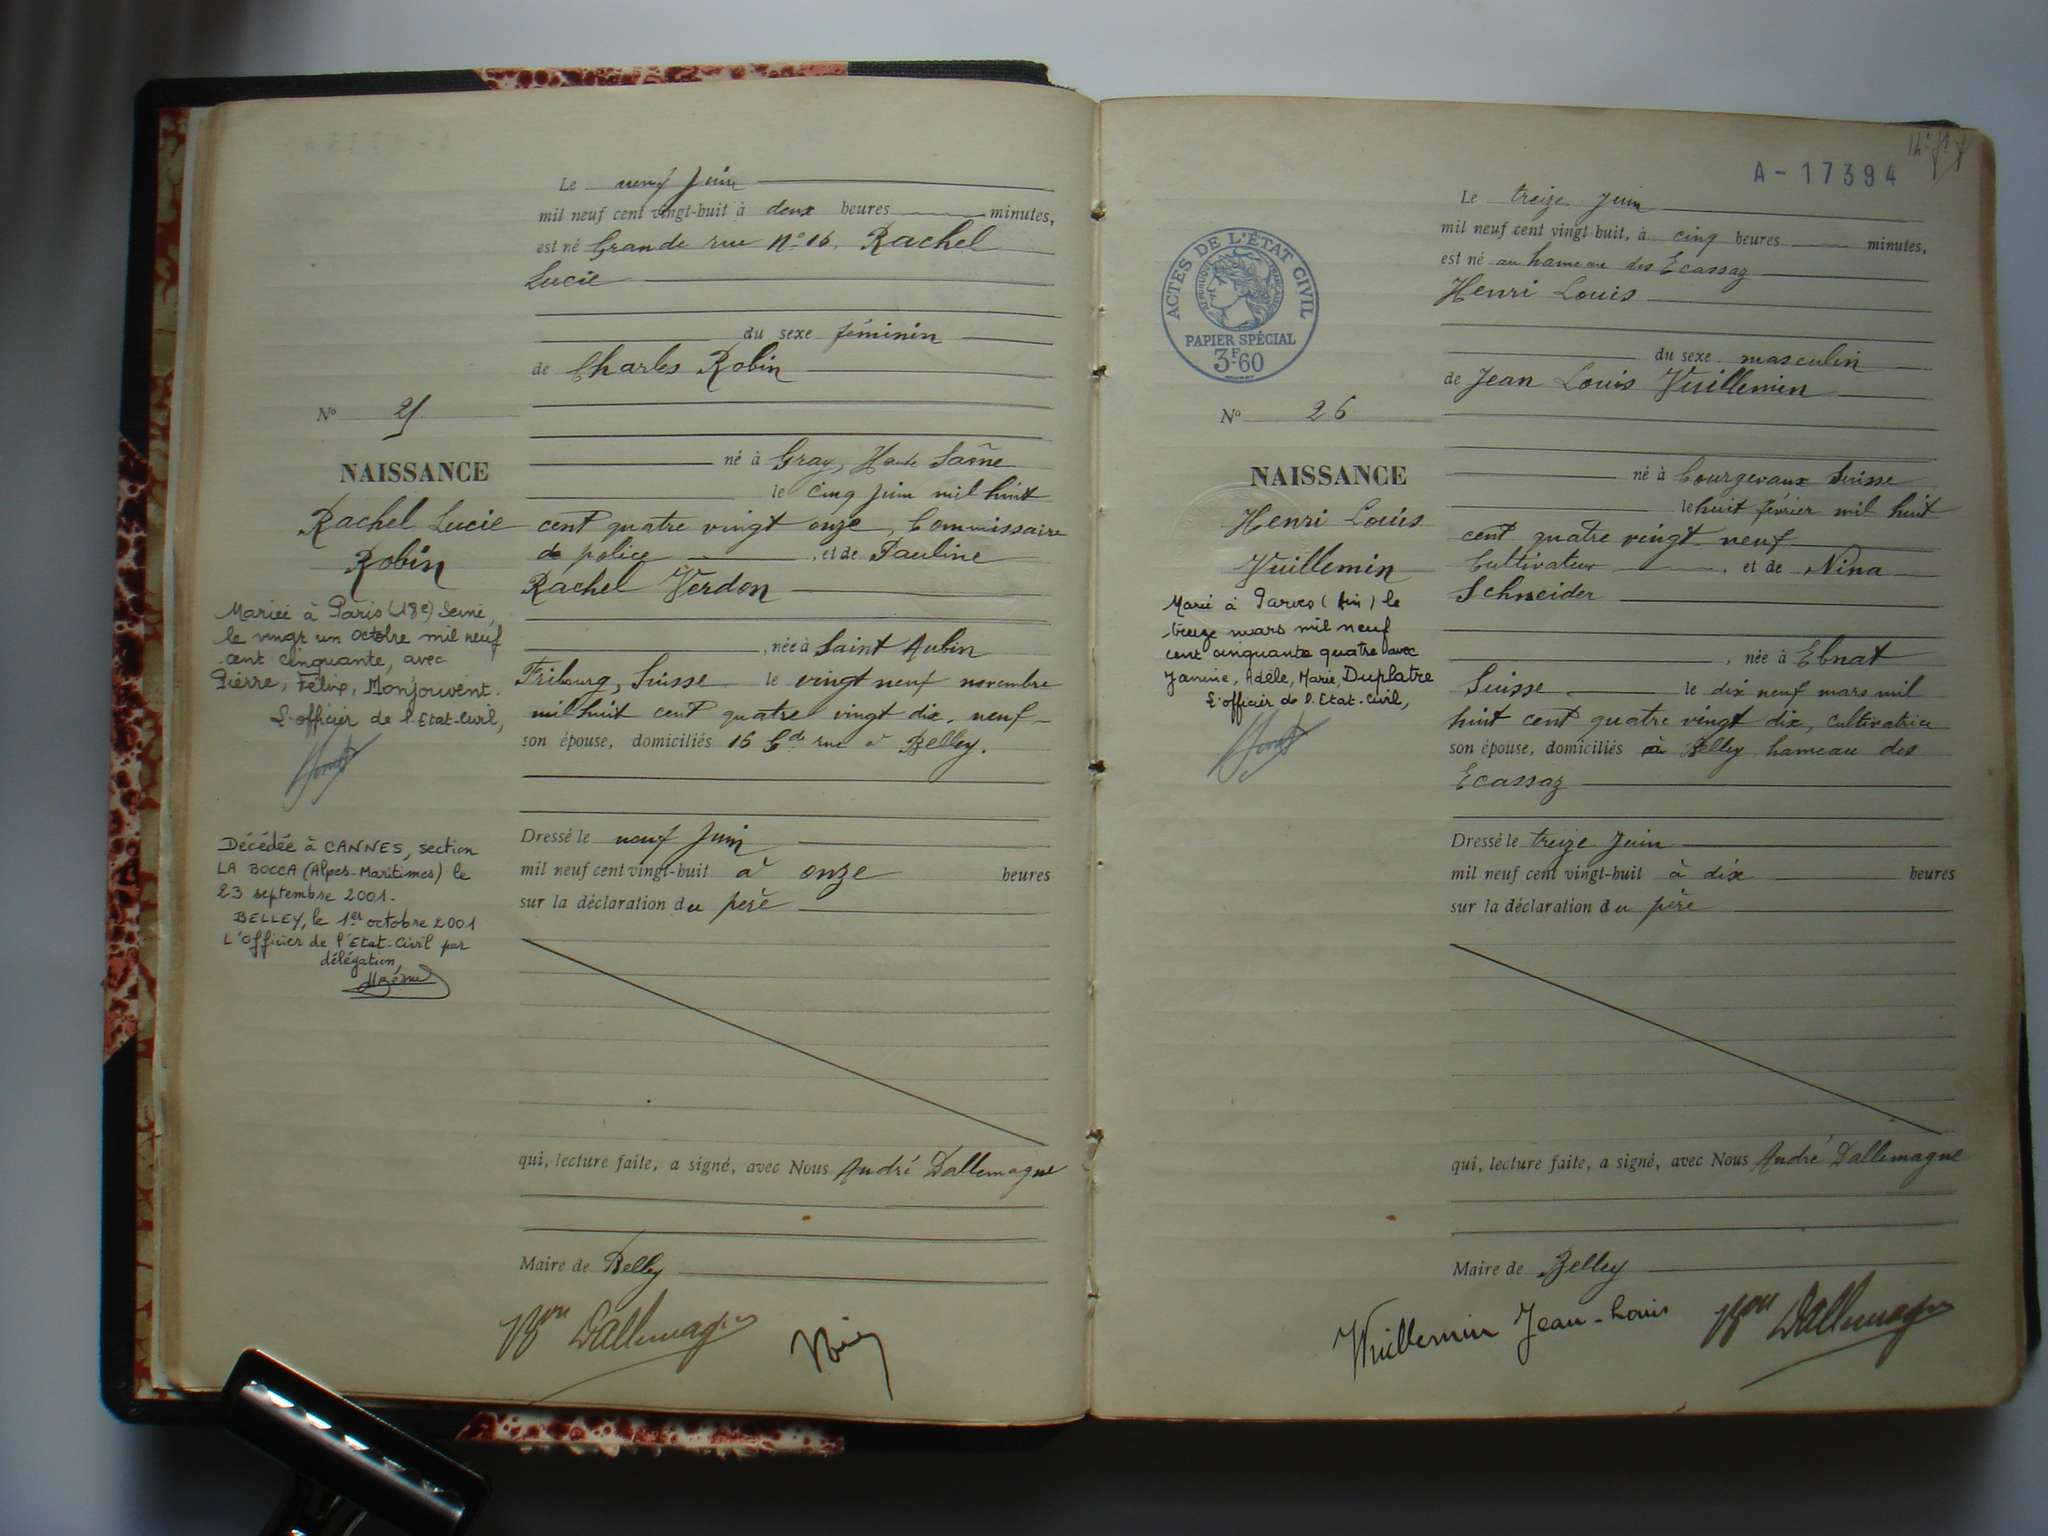 Le neuf Juin
mil neuf cent vingt-huit à deux heures minutes,
est né Grande rue No 16, Rachel
Lucie
du sexe féminin
de Charles Robin
No 25
NAISSANCE
Rachel Lucie
Robin
né à Gray, Haute Saône
le cinq Juin mil huit
cent quatre vingt onze, Commissaire
de police, et de Pauline
Rachel Verdon
, née à Saint Aubin
Fribourg, Suisse le vingt neuf novembre
mil huit cent quatre vingt dix neuf
son épouse, domiciliés 16 Gde rue à Belley.
Mariée à Paris (18e) Seine,
le vingt un octobre mil neuf
cent cinquante, avec
Pierre, Félix, Monjouvent.
L'officier de l'Etat-Civil,
Décédée à CANNES, section
LA BOCCA (Alpes-Maritimes) le
23 septembre 2001.
BELLEY, le 1er octobre 2001
L'Officier de l'Etat-Civil par
délégation,
Dressé le neuf Juin
mil neuf cent vingt-huit à onze heures
sur la déclaration du père
qui, lecture faite, a signé, avec Nous André Dallemagne
Maire de Belley
Bon Dallemagne
A-17394
Le treize Juin
mil neuf cent vingt-huit, à cinq heures minutes,
est né au hameau des Ecassaz
Henri Louis
du sexe masculin
de Jean Louis Vuillemin
ACTES DE L'ÉTAT CIVIL
RÉPUBLIQUE FRANÇAISE
PAPIER SPÉCIAL
3F60
No 26
NAISSANCE
Henri Louis
Vuillemin
né à Courgevaux Suisse
le huit février mil huit
cent quatre vingt neuf
Cultivateur, et de Nina
Schneider
, née à Ebnat
Suisse le dix neuf mars mil
huit cent quatre vingt dix, cultivatrice
son épouse, domiciliés à Belley hameau des
Ecassaz
Marié à Parves (Ain) le
treize mars mil neuf
cent cinquante quatre avec
Janine, Adèle, Marie, Duplatre
L'officier de l'Etat-Civil,
Dressé le treize Juin
mil neuf cent vingt-huit à dix heures
sur la déclaration du père
qui, lecture faite, a signé, avec Nous André Dallemagne
Maire de Belley
Vuillemin Jean-Louis Bon Dallemagne